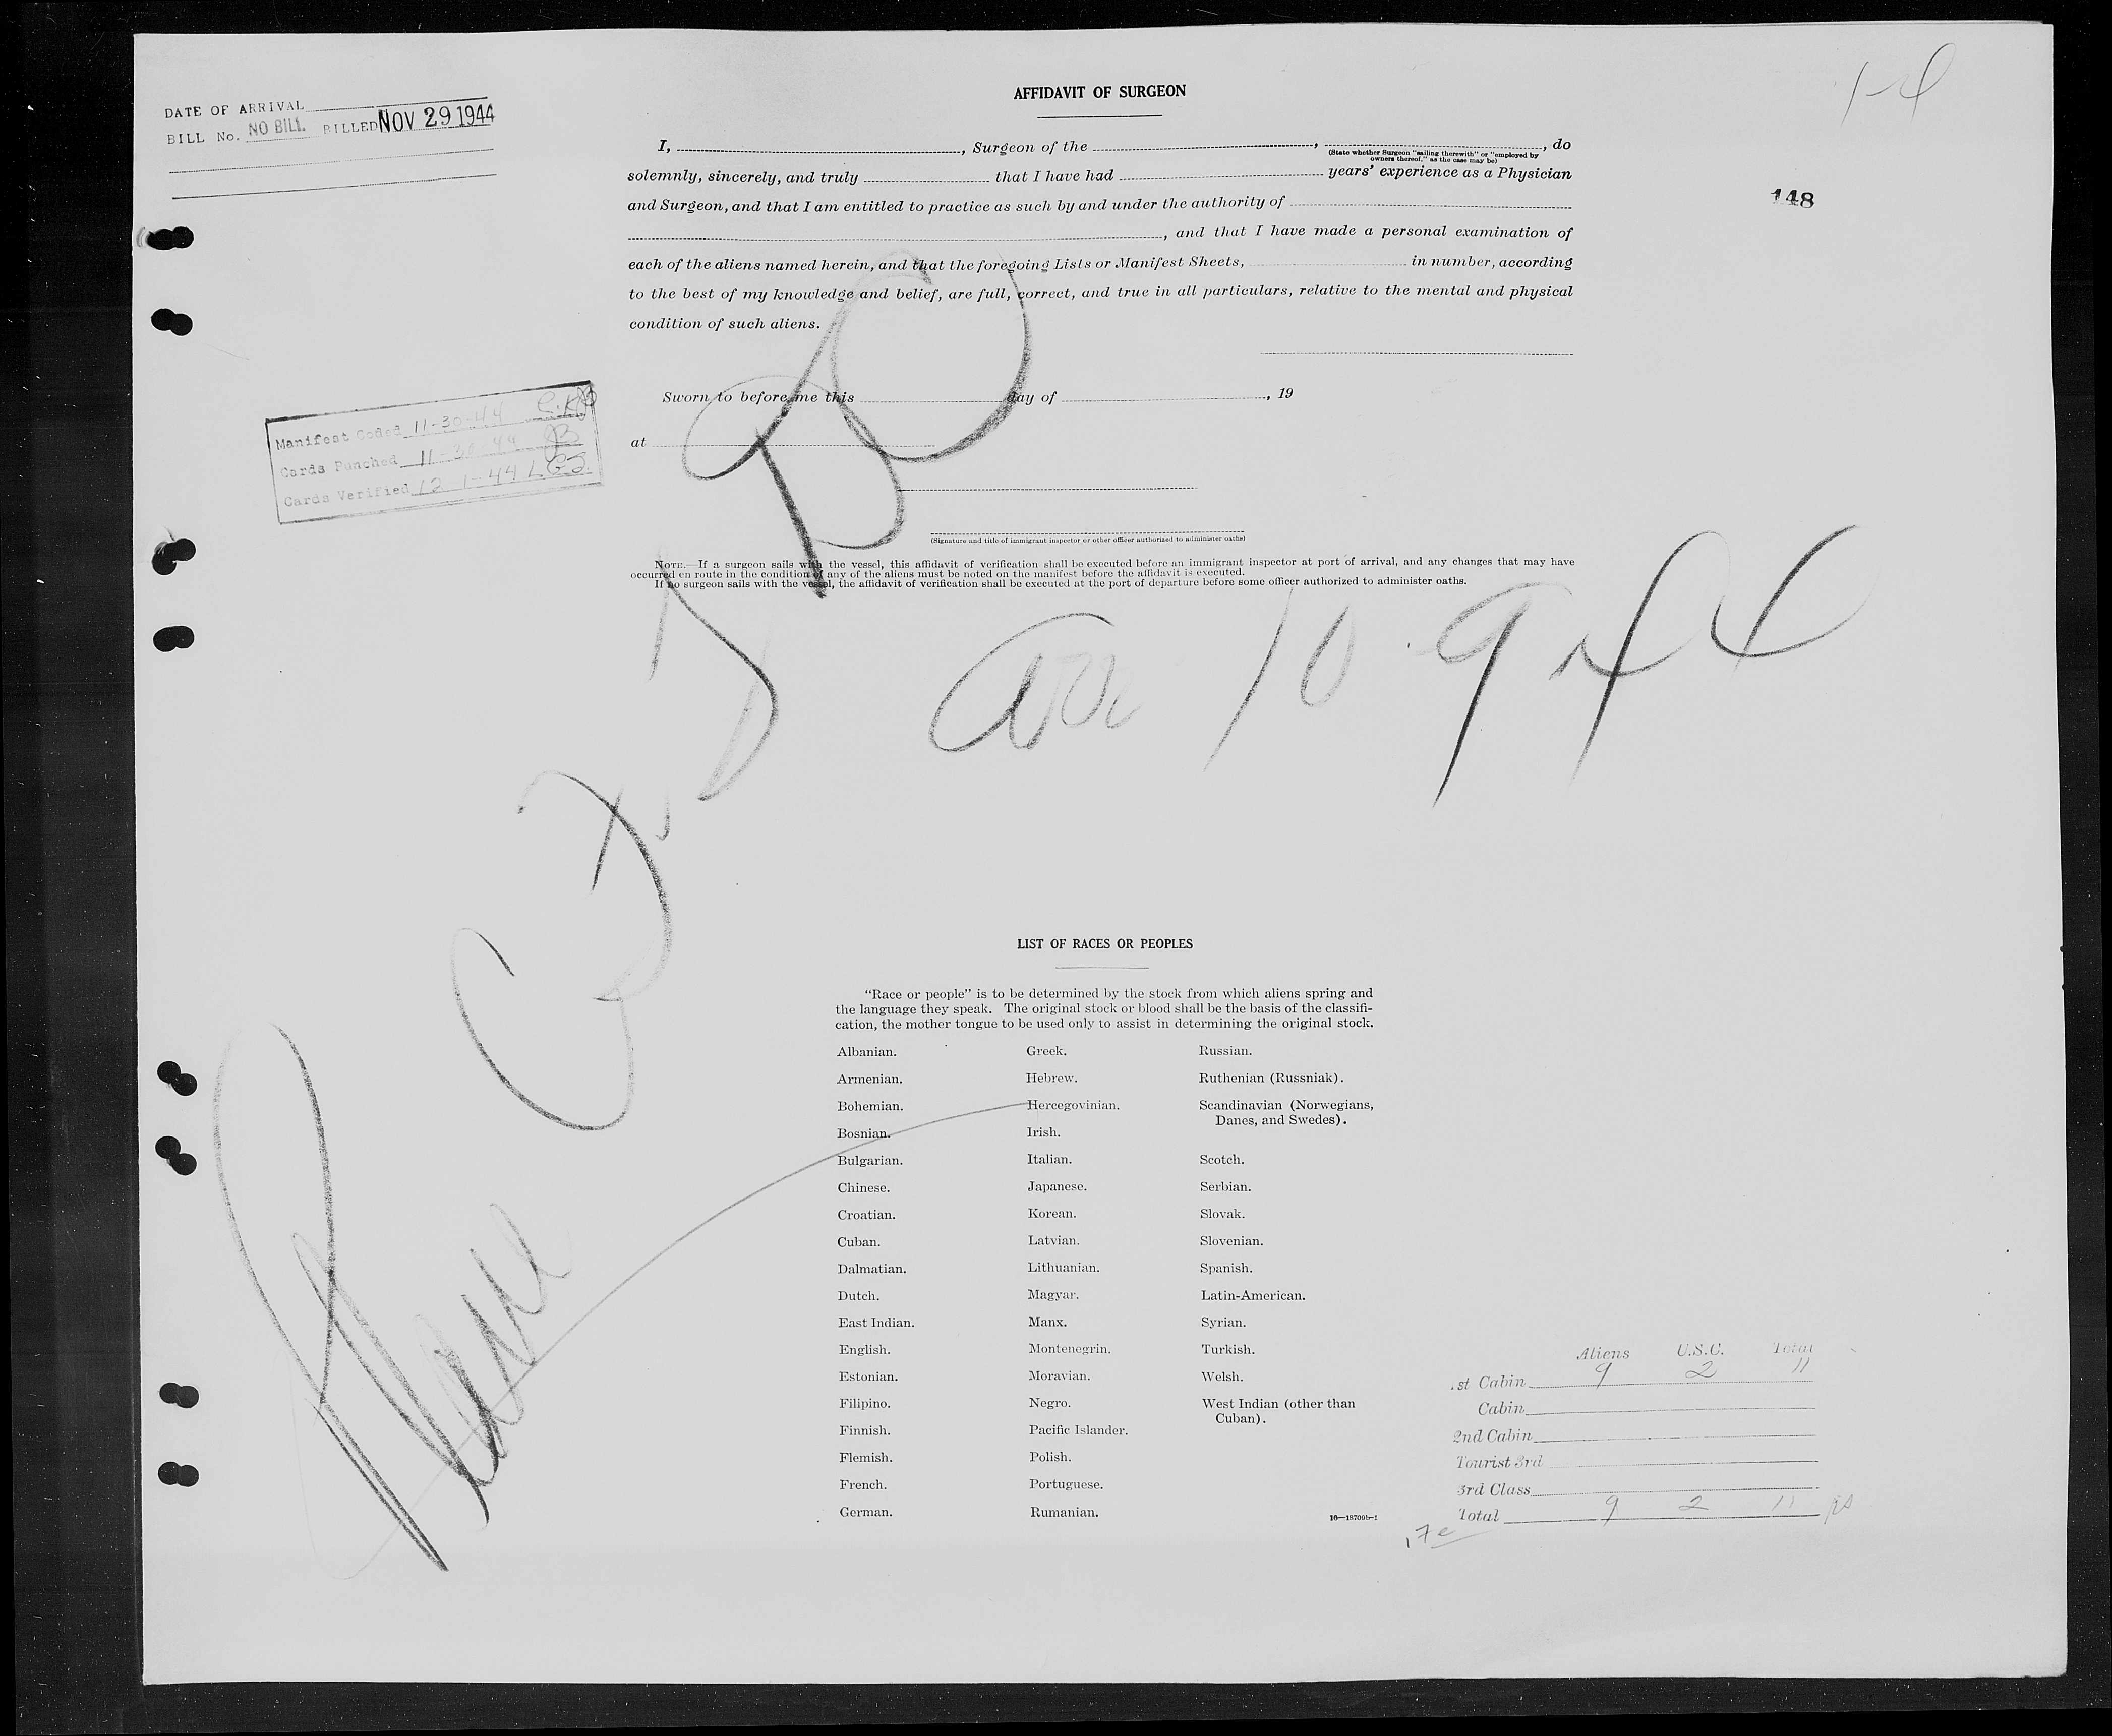 DATE OF ARRIVAL
BILL No. NO BILL. BILLED NOV 29 1944
AFFIDAVIT OF SURGEON
148
I, , Surgeon of the , , do
(State whether Surgeon "sailing therewith" or "employed by
owners thereof," as the case may be)
solemnly, sincerely, and truly that I have had years' experience as a Physician
and Surgeon, and that I am entitled to practice as such by and under the authority of
, and that I have made a personal examination of
each of the aliens named herein, and that the foregoing Lists or Manifest Sheets, in number, according
to the best of my knowledge and belief, are full, correct, and true in all particulars, relative to the mental and physical
condition of such aliens.
Sworn to before me this day of , 19
at
Manifest Coded 11-30-44
Cards Punched 11-30-44 JB
Cards Verified 12-1-44
(Signature and title of immigrant inspector or other officer authorized to administer oaths)
NOTE.—If a surgeon sails with the vessel, this affidavit of verification shall be executed before an immigrant inspector at port of arrival, and any changes that may have
occurred en route in the condition of any of the aliens must be noted on the manifest before the affidavit is executed.
If no surgeon sails with the vessel, the affidavit of verification shall be executed at the port of departure before some officer authorized to administer oaths.
10 9 44
Plane
LIST OF RACES OR PEOPLES
"Race or people" is to be determined by the stock from which aliens spring and
the language they speak. The original stock or blood shall be the basis of the classifi-
cation, the mother tongue to be used only to assist in determining the original stock.
Albanian. Greek. Russian.
Armenian. Hebrew. Ruthenian (Russniak).
Bohemian. Hercegovinian. Scandinavian (Norwegians,
Danes, and Swedes).
Bosnian. Irish.
Bulgarian. Italian. Scotch.
Chinese. Japanese. Serbian.
Croatian. Korean. Slovak.
Cuban. Latvian. Slovenian.
Dalmatian. Lithuanian. Spanish.
Dutch. Magyar. Latin-American.
East Indian. Manx. Syrian.
English. Montenegrin. Turkish.
Estonian. Moravian. Welsh.
Filipino. Negro. West Indian (other than
Cuban).
Finnish. Pacific Islander.
Flemish. Polish.
French. Portuguese.
German. Rumanian.
16—18709b-1
Aliens U.S.C. Total
.st Cabin 9 2 11
Cabin
2nd Cabin
Tourist 3rd
3rd Class
Total 9 2 11